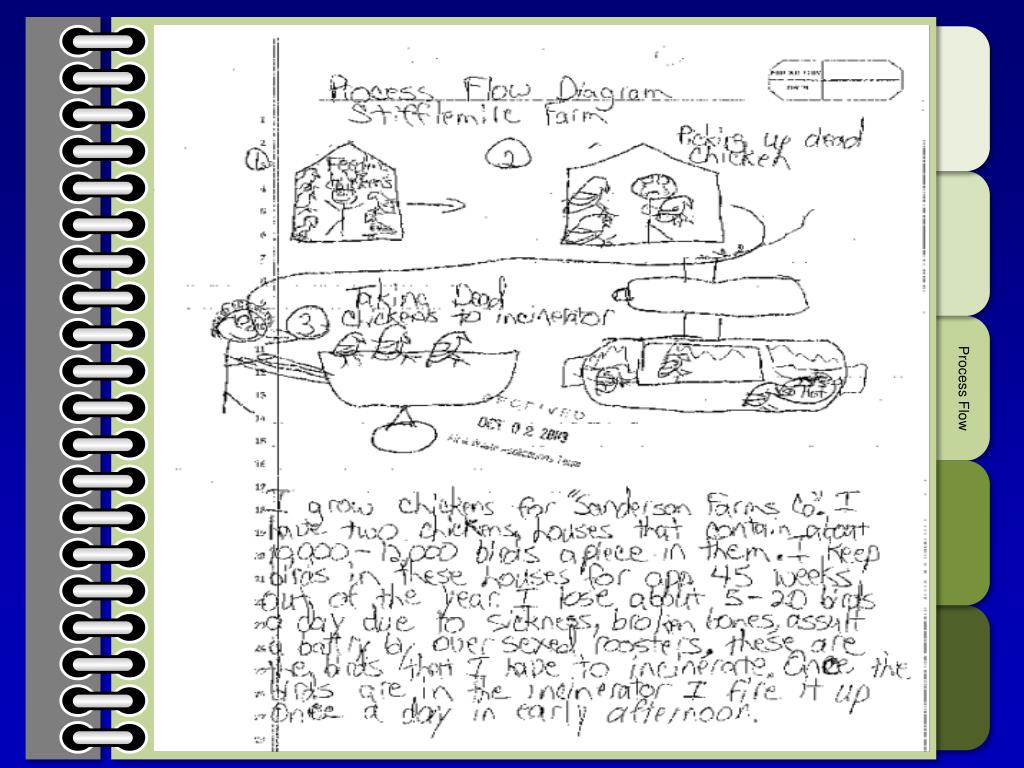 Process Flow Diagram
Stifflemile Farm
1
Feeding
chickens
2
Picking up dead
chicken
3
Taking Dead
chickens to incinerator
Hot
RECEIVED
OCT 02 2003
Team
I grow chickens for "Sanderson Farms Co". I
have two chickens houses that contain about
10,000-12,000 birds apiece in them. I keep
birds in these houses for app 45 weeks
out of the year. I lose about 5-20 birds
a day due to sickness, broken bones, assult
a battry by over sexed roosters, these are
the birds that I have to incinerate. Once the
birds are in the incinerator I fire it up
Once a day in early afternoon.
Process Flow